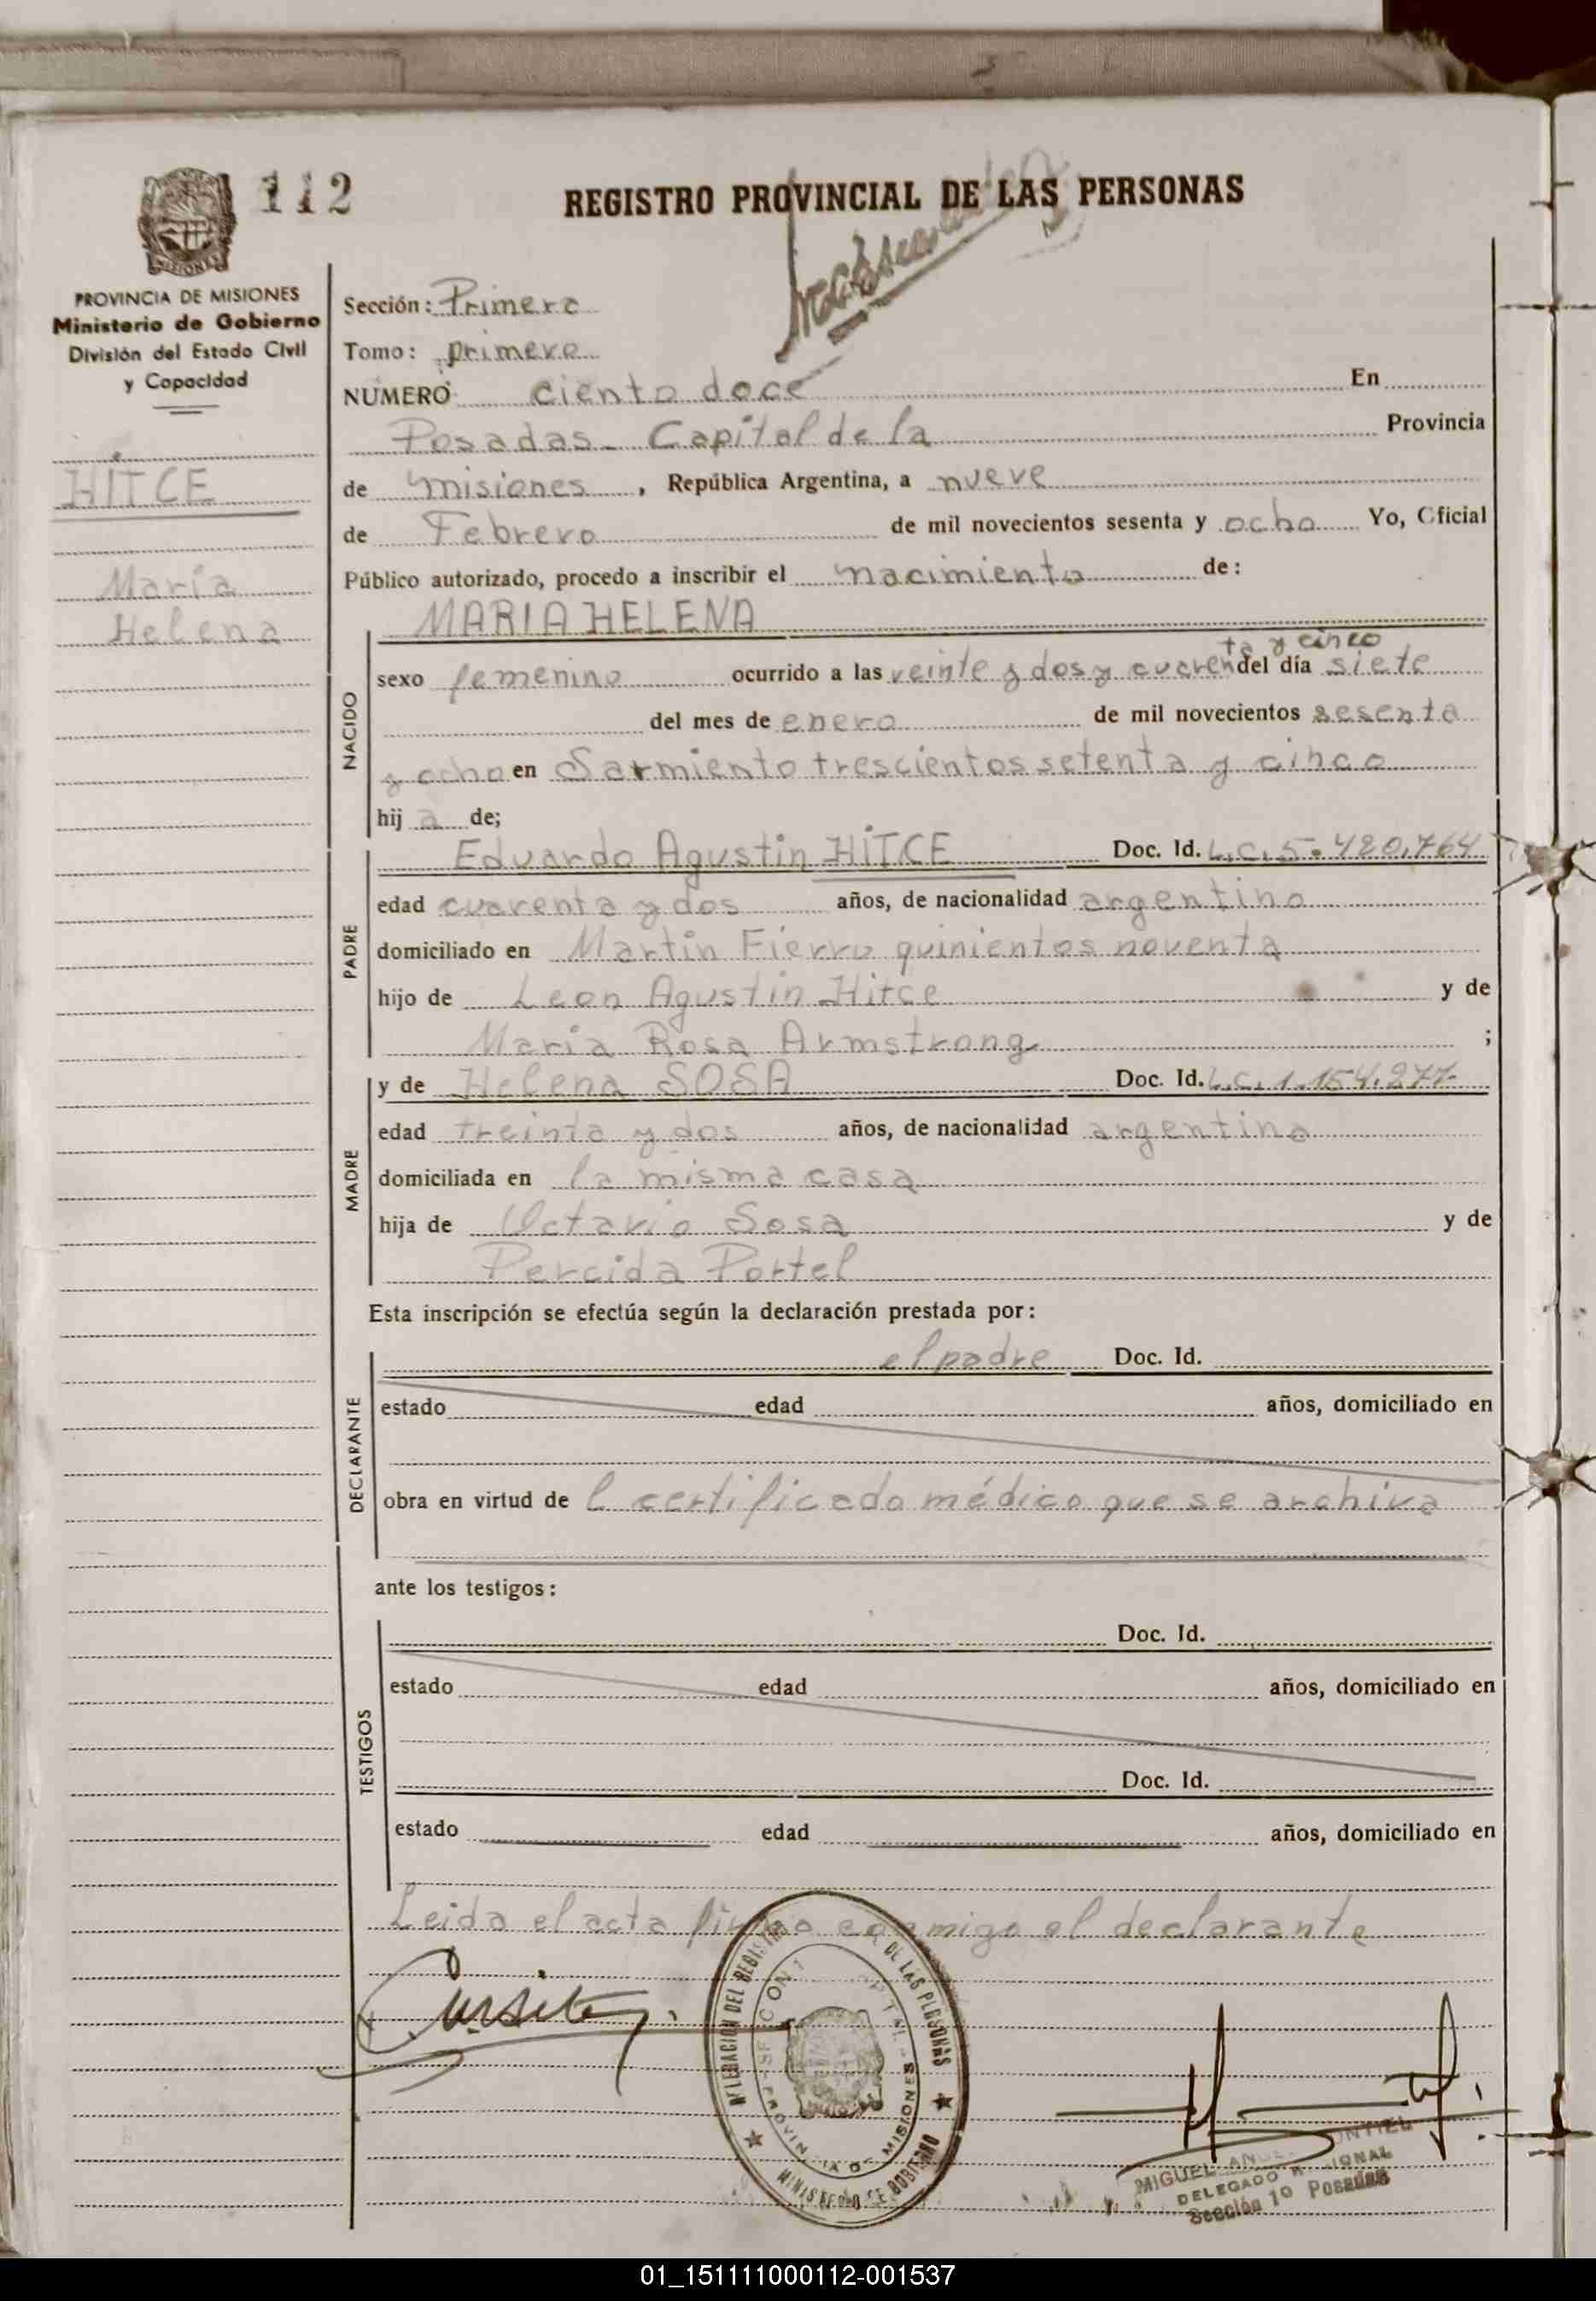 112
REGISTRO PROVINCIAL DE LAS PERSONAS
MISIONES
PROVINCIA DE MISIONES
Ministerio de Gobierno
División del Estado Civil
y Capacidad
HITCE
María
Helena
Sección: Primera
Tomo: primero
NÚMERO ciento doce En
Posadas - Capital de la Provincia
de misiones, República Argentina, a nueve
de Febrero de mil novecientos sesenta y ocho Yo, Oficial
Público autorizado, procedo a inscribir el nacimiento de:
MARIA HELENA
NACIDO
ta y cinco
sexo femenino ocurrido a las veinte y dos y cuaren del día siete
del mes de enero de mil novecientos sesenta
y ocho en Sarmiento trescientos setenta y cinco
hij a de;
PADRE
Eduardo Agustin HITCE Doc. Id. L.C. 5.420.764
edad cuarenta y dos años, de nacionalidad argentino
domiciliado en Martin Fierro quinientos noventa
hijo de Leon Agustin Hitce y de
Maria Rosa Armstrong ;
MADRE
y de Helena SOSA Doc. Id. L.C. 1.154.277
edad treinta y dos años, de nacionalidad argentina
domiciliada en la misma casa
hija de Octavio Sosa y de
Percida Portel
Esta inscripción se efectúa según la declaración prestada por:
DECLARANTE
el padre Doc. Id.
estado edad años, domiciliado en
obra en virtud de l certificado médico que se archiva
ante los testigos:
TESTIGOS
Doc. Id.
estado edad años, domiciliado en
Doc. Id.
estado edad años, domiciliado en
Leida el acta firma conmigo el declarante
DEL REGISTRO DE LAS PERSONAS
MINISTERIO DE GOBIERNO
PROVINCIA DE MISIONES
MIGUEL ANGEL MONTIEL
DELEGADO
Sección 1º Posadas
01_151111000112-001537